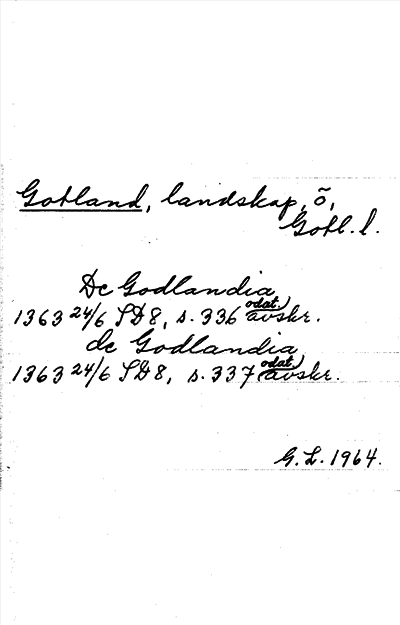 Gotland, landskap, ö,
Gotl. l.
De Godlandia
1363 24/6 SD 8, s. 336 odat. avskr.
de Godlandia
1363 24/6 SD 8, s. 337 odat. avskr.
G. L. 1964.